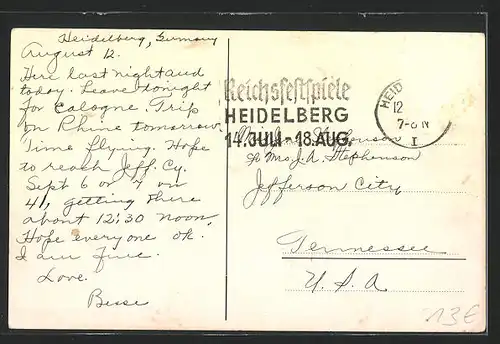 Heidelberg, Germany
August 12.
Here last night and
today. Leave tonight
for Cologne. Trip
on Rhine tomorrow.
Time flying. Hope
to reach Jeff. Cy.
Sept 6 or 7 on
41, getting there
about 12:30 noon.
Hope everyone ok.
I am fine.
Love.
Besse
Reichsfestspiele
HEIDELBERG
14. JULI - 18. AUG.
HEID
12
7-8 N
I
Stephenson
% Mrs. J. A. Stephenson
Jefferson City
Tennessee
U. S. A
13€